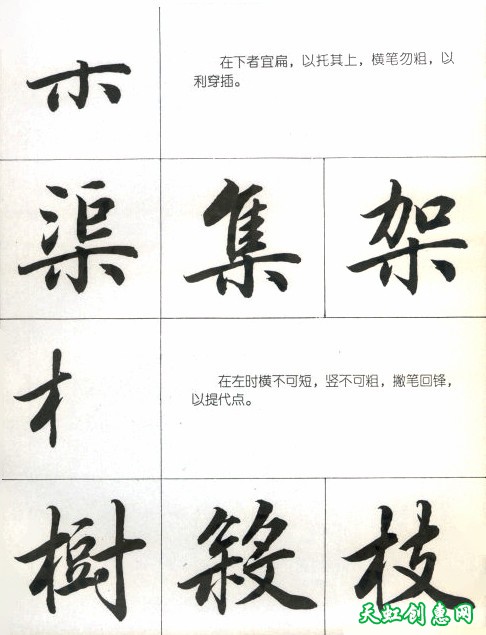 木
在下者宜扁，以托其上，横笔勿粗，以
利穿插。
渠 集 架
木
在左时横不可短，竖不可粗，撇笔回锋，
以提代点。
樹 殺 枝
天虹创惠网